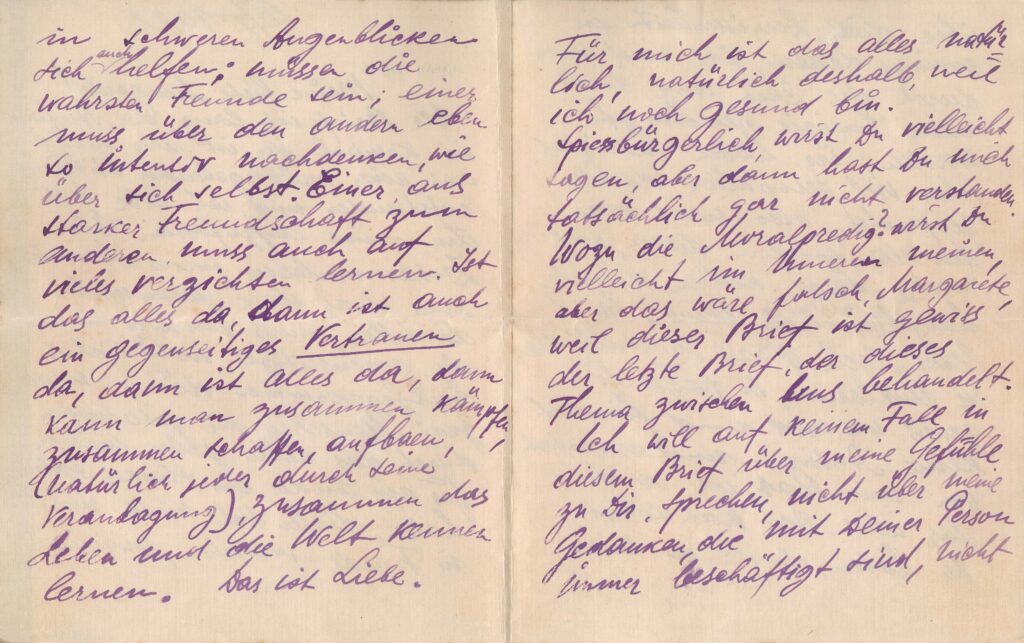 in schweren Augenblicken
sich auch helfen; müssen die
wahrsten Freunde sein; einer
muss über den andern eben
so intensiv nachdenken, wie
über sich selbst. Einer aus
starker Freundschaft zum
anderen muss auch auf
vieles verzichten lernen. Ist
das alles da, dann ist auch
ein gegenseitiges Vertrauen
da, dann ist alles da, dann
kann man zusammen kämpfen,
zusammen schaffen, aufbaen,
(natürlich jeder durch seine
Veranlagung), zusammen das
Leben und die Welt kennen
lernen. Das ist Liebe.
Für mich ist das alles natür
lich, natürlich deshalb, weil
ich noch gesund bin.
Spiessbürgerlich, wirst Du vielleicht
sagen, aber dann hast Du mich
tatsächlich gar nicht verstanden.
Wozu die Moralpredig? wirst Du
vielleicht im Inneren meinen,
aber das wäre falsch, Margarete,
weil dieser Brief ist gewiss,
der letzte Brief, der dieses
Thema zwischen uns behandelt.
Ich will auf keinem Fall in
diesem Brief über meine Gefühle
zu Dir, sprechen, nicht über meine
Gedanken, die mit Deiner Person
immer beschäftigt sind, nicht